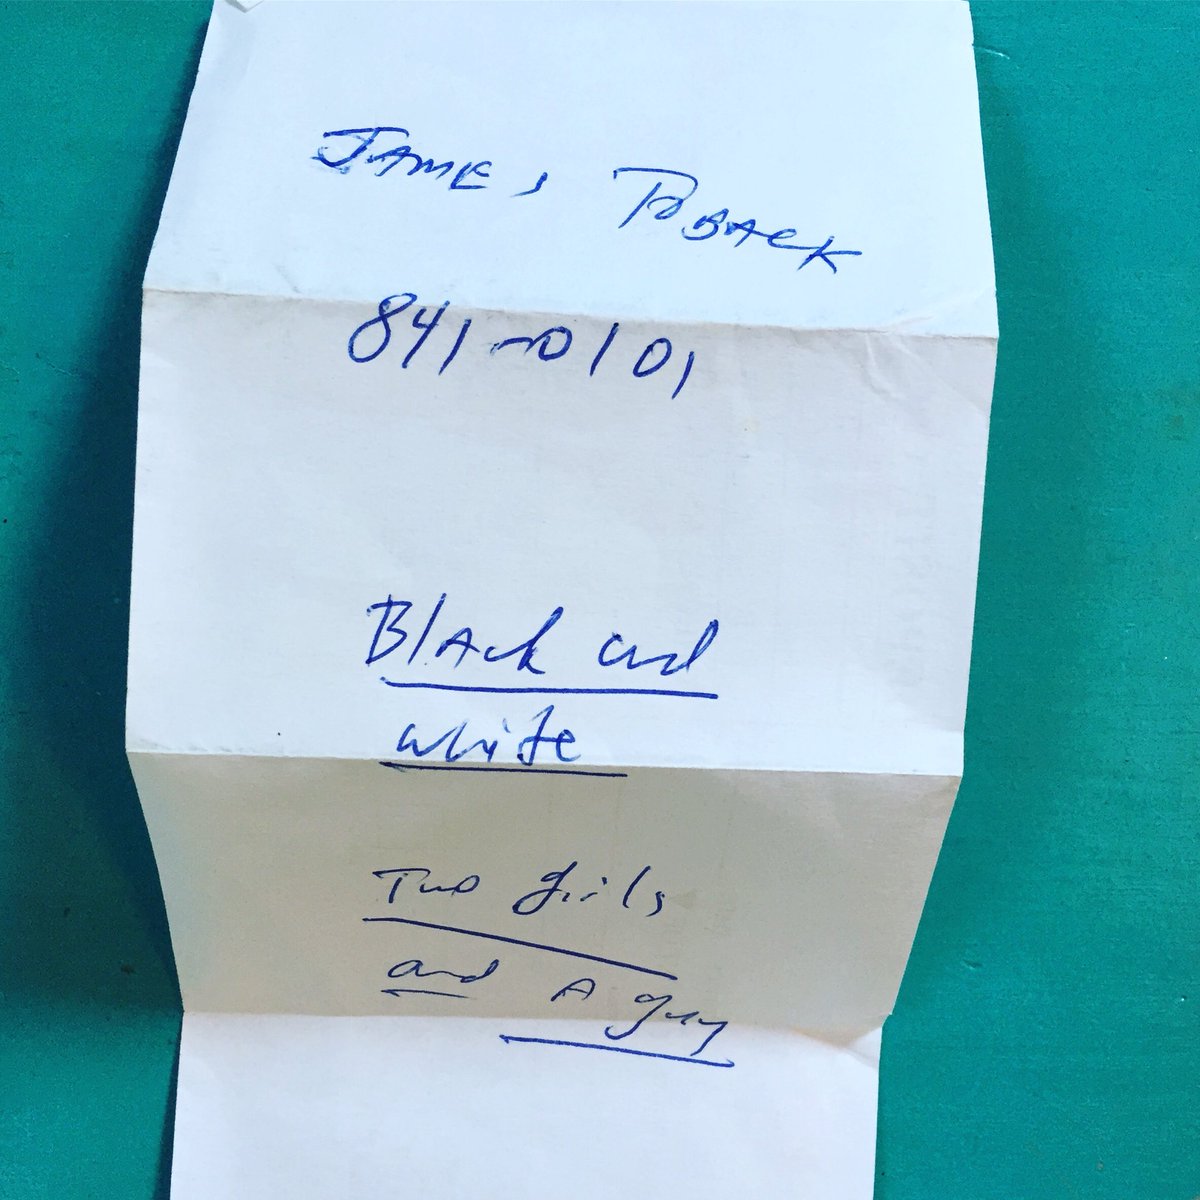 JAMES TOBACK
841-0101
Black and
white
Two girls
and A guy